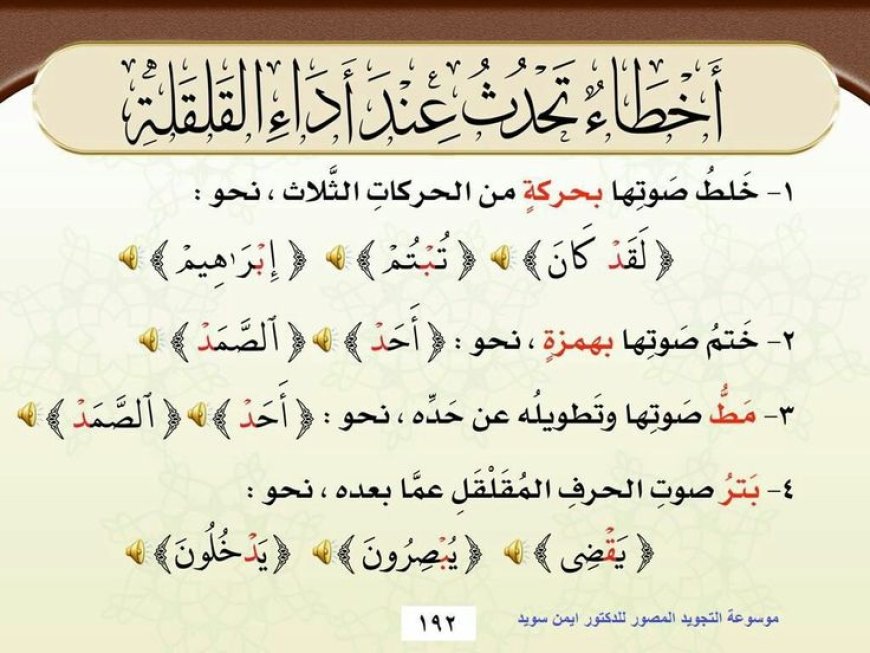 أَخْطَاءٌ تَحْدُثُ عِنْدَ أَدَاءِ القَلْقَلَةِ
١- خَلطُ صَوتِها بحركةٍ من الحركاتِ الثَّلاث ، نحو :
﴿ لَقَدْ كَانَ ﴾ ﴿ تُبْتُمْ ﴾ ﴿ إِبْرَٰهِيمْ ﴾
٢- ختمُ صَوتِها بهمزةٍ ، نحو : ﴿ أَحَدْ ﴾ ﴿ ٱلصَّمَدْ ﴾
٣- مَطُّ صَوتِها وتَطويلُه عن حَدِّه ، نحو : ﴿ أَحَدْ ﴾ ﴿ ٱلصَّمَدْ ﴾
٤- بَترُ صوتِ الحرفِ المُقَلْقَلِ عمَّا بعده ، نحو :
﴿ يَقْضِى ﴾ ﴿ يُبْصِرُونَ ﴾ ﴿ يَدْخُلُونَ ﴾
موسوعة التجويد المصور للدكتور ايمن سويد
١٩٢